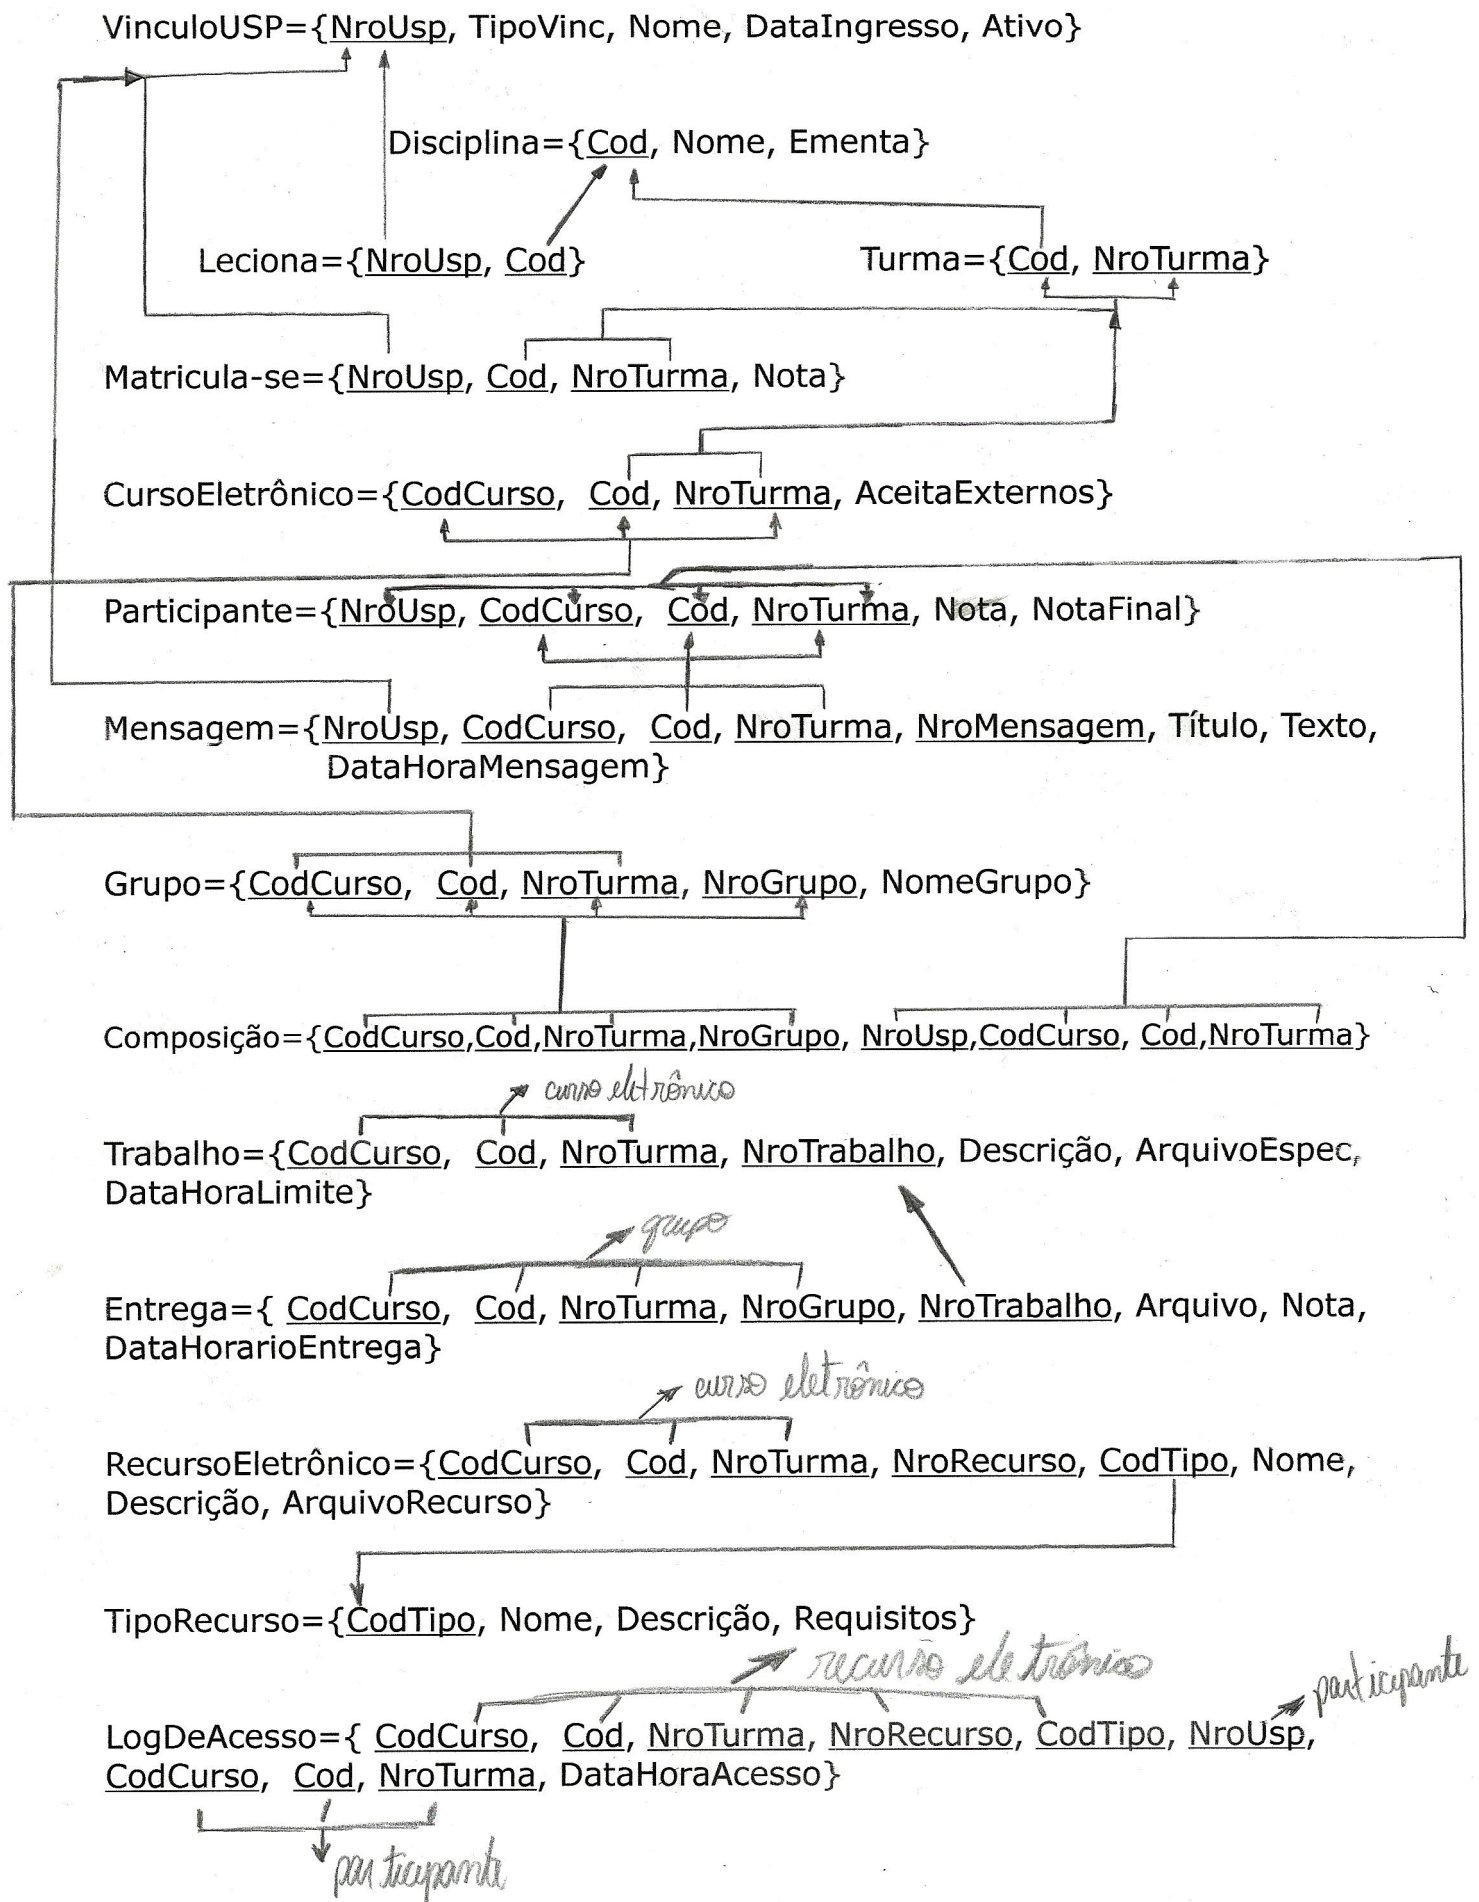 VinculoUSP={NroUsp, TipoVinc, Nome, DataIngresso, Ativo}
Disciplina={Cod, Nome, Ementa}
Leciona={NroUsp, Cod}
Turma={Cod, NroTurma}
Matricula-se={NroUsp, Cod, NroTurma, Nota}
CursoEletrônico={CodCurso, Cod, NroTurma, AceitaExternos}
Participante={NroUsp, CodCurso, Cod, NroTurma, Nota, NotaFinal}
Mensagem={NroUsp, CodCurso, Cod, NroTurma, NroMensagem, Título, Texto,
DataHoraMensagem}
Grupo={CodCurso, Cod, NroTurma, NroGrupo, NomeGrupo}
Composição={CodCurso,Cod,NroTurma,NroGrupo, NroUsp,CodCurso, Cod,NroTurma}
curso eletrônico
Trabalho={CodCurso, Cod, NroTurma, NroTrabalho, Descrição, ArquivoEspec,
DataHoraLimite}
grupo
Entrega={ CodCurso, Cod, NroTurma, NroGrupo, NroTrabalho, Arquivo, Nota,
DataHorarioEntrega}
curso eletrônico
RecursoEletrônico={CodCurso, Cod, NroTurma, NroRecurso, CodTipo, Nome,
Descrição, ArquivoRecurso}
TipoRecurso={CodTipo, Nome, Descrição, Requisitos}
recurso eletrônico
participante
LogDeAcesso={ CodCurso, Cod, NroTurma, NroRecurso, CodTipo, NroUsp,
CodCurso, Cod, NroTurma, DataHoraAcesso}
participante